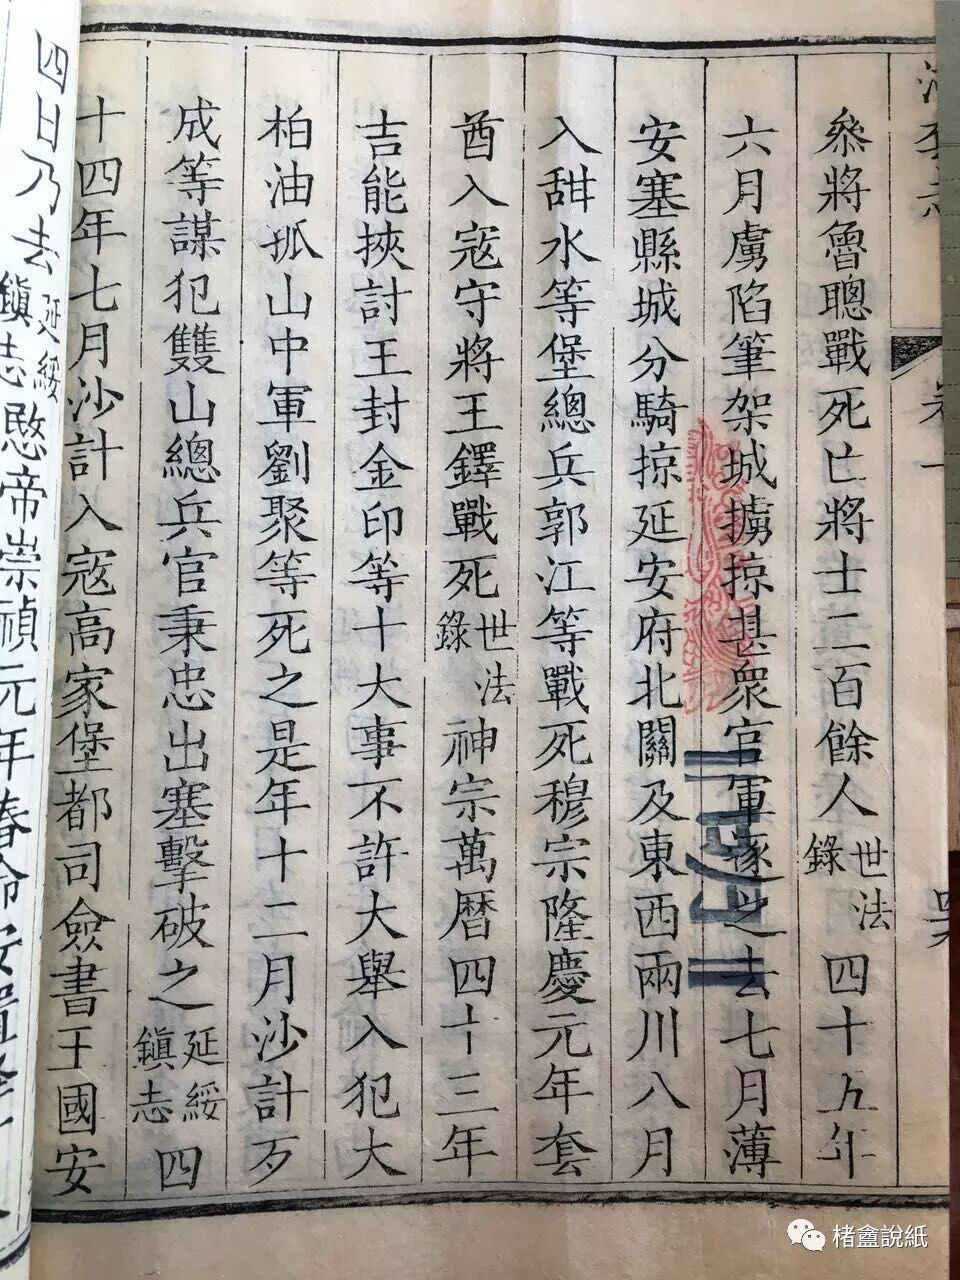 叅將魯聰戰死亡將士二百餘人世法錄四十五年
六月虜陷筆架城擄掠甚衆官軍逐之去七月薄
安塞縣城分騎掠延安府北關及東西兩川八月
入甜水等堡總兵郭江等戰死穆宗隆慶元年套
酋入寇守將王鐸戰死世法錄神宗萬曆四十三年
吉能挾討王封金印等十大事不許大舉入犯大
柏油孤山中軍劉聚等死之是年十二月沙計歹
成等謀犯雙山總兵官秉忠出塞擊破之延綏鎮志四
十四年七月沙計入寇高家堡都司僉書王國安
四日乃去延綏鎮志愍帝崇禎元年春命
楮盦說紙